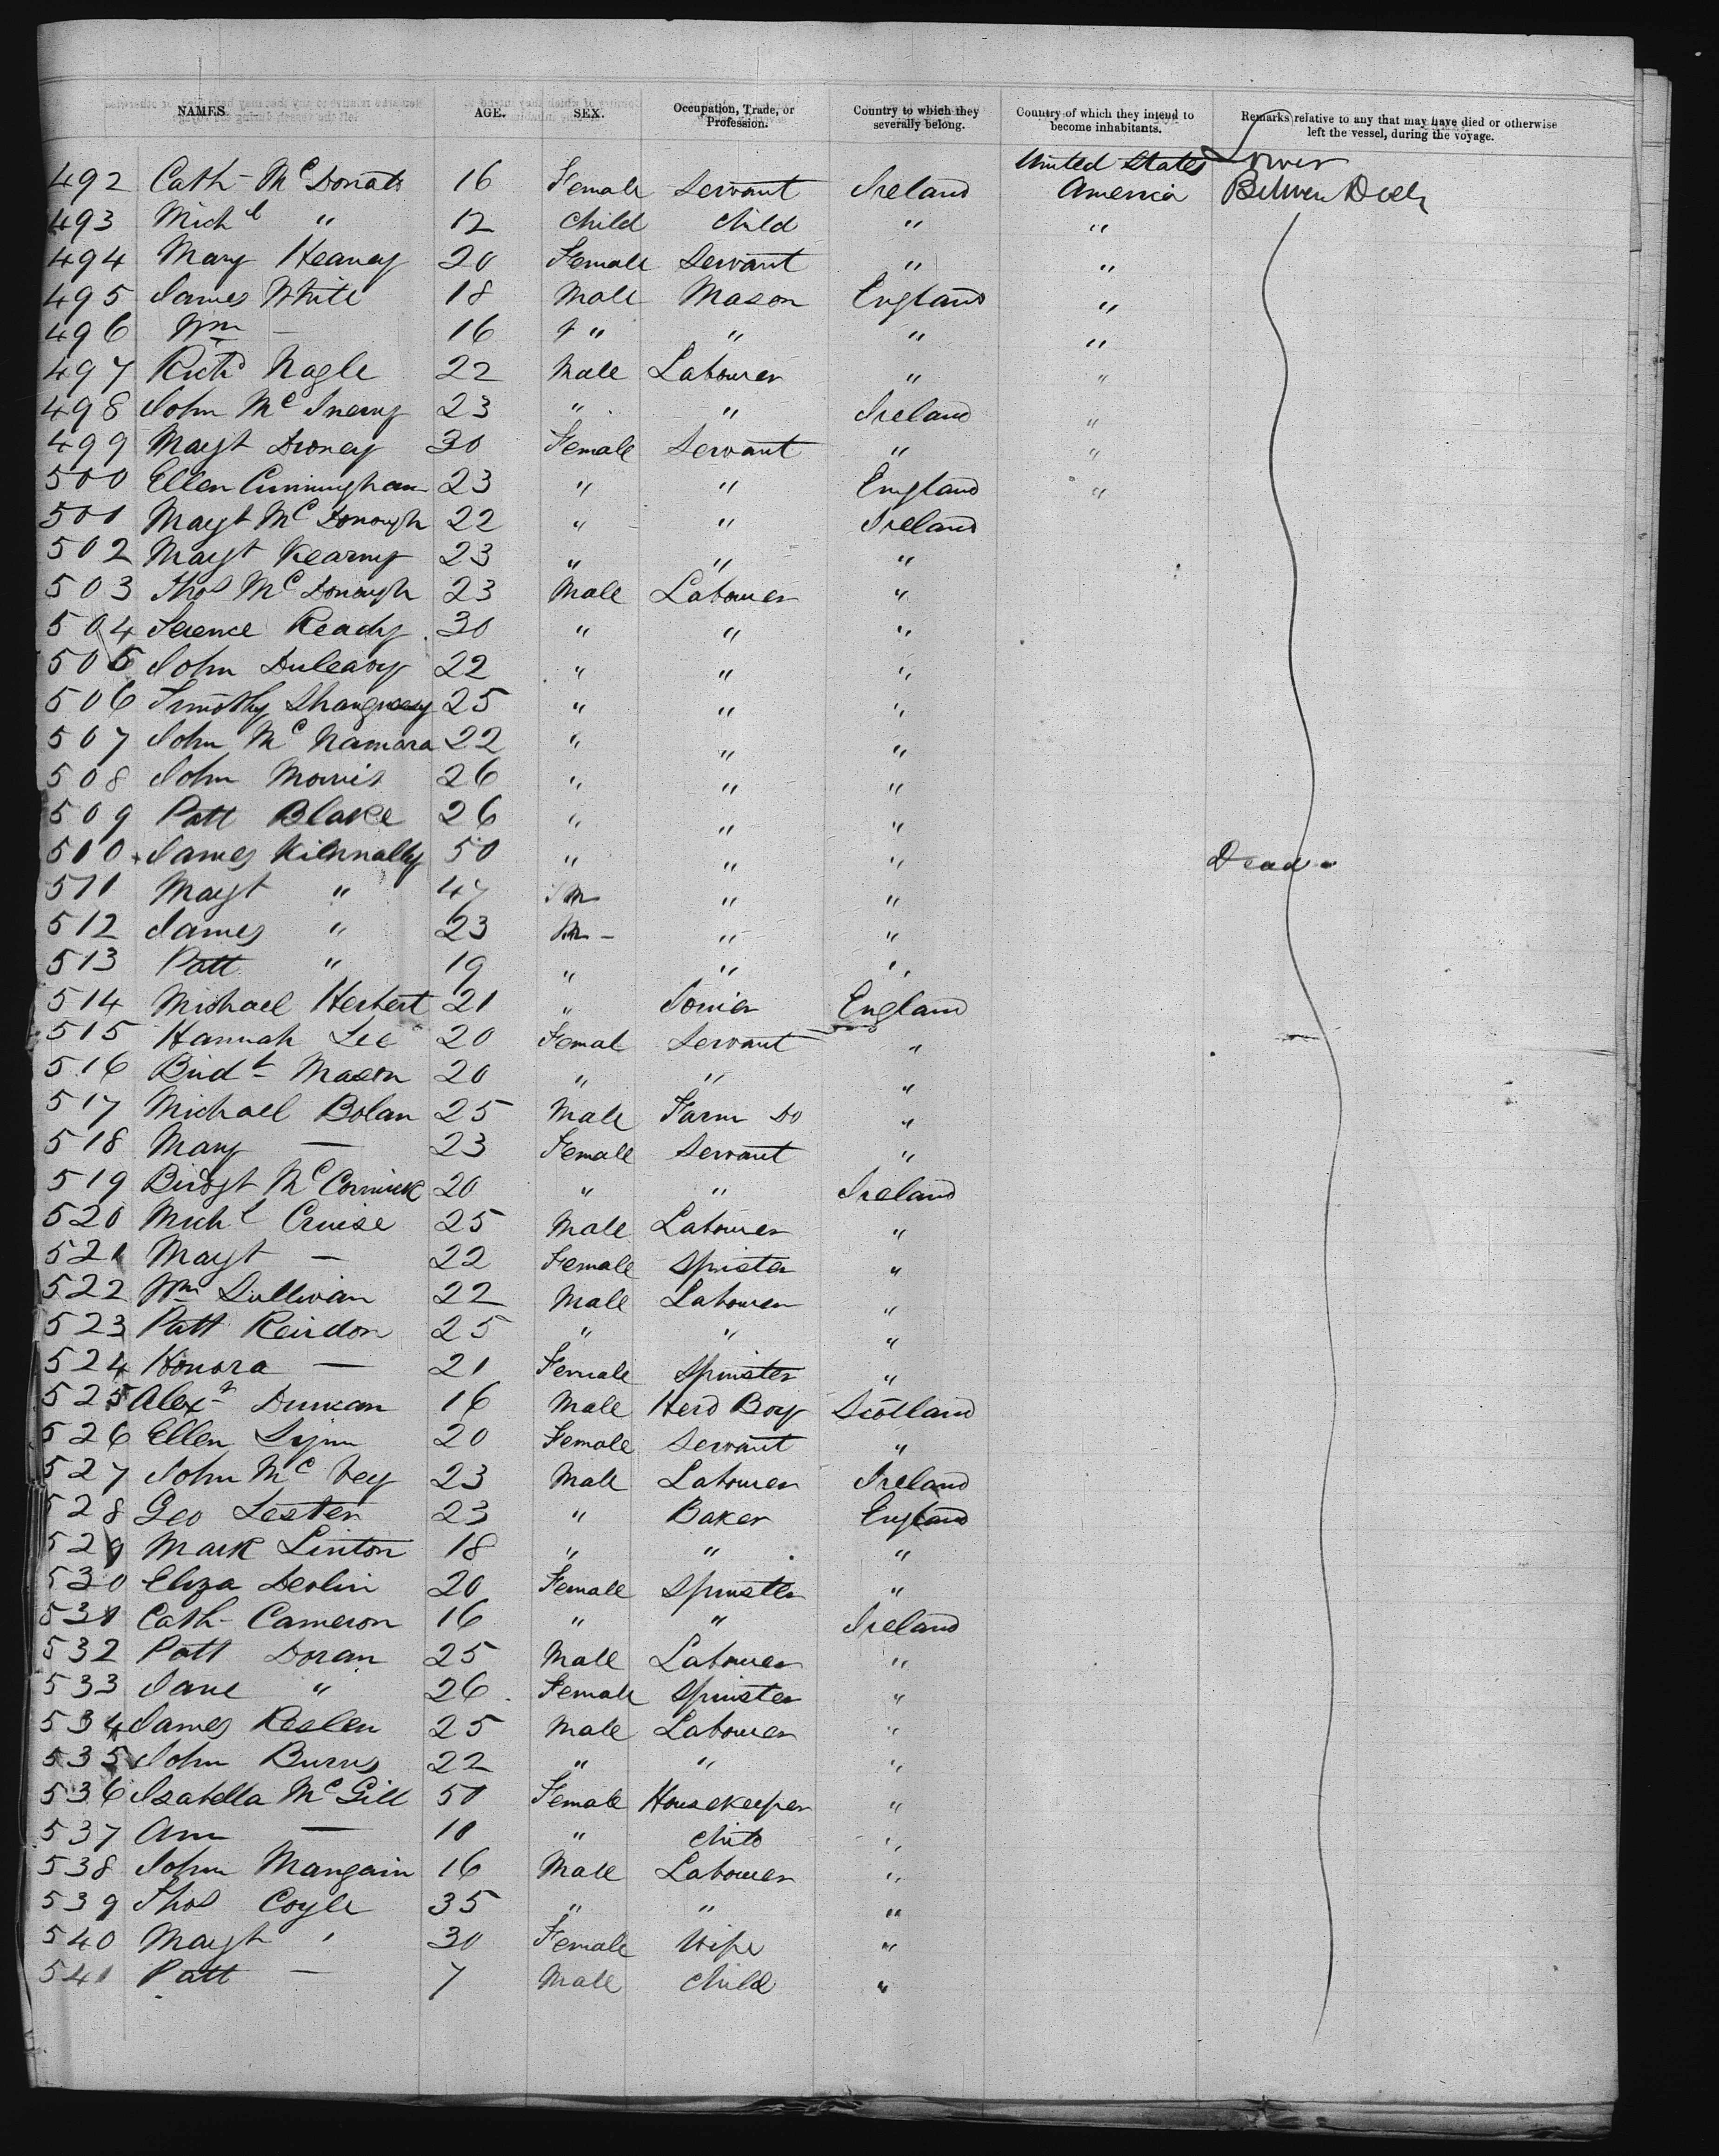 NAMES. AGE. SEX. Occupation, Trade, or Profession. Country to which they severally belong. Country of which they intend to become inhabitants. Remarks relative to any that may have died or otherwise left the vessel, during the voyage.
United States Lower
492 Cath- McDonald 16 Female Servant Ireland America Between Deck
493 Michl " 12 Child Child " "
494 Mary Heaney 20 Female Servant " "
495 James White 18 Male Mason England "
496 Wm - 16 " " " "
497 Richd Nagle 22 Male Labourer " "
498 John McInerny 23 " " Ireland "
499 Magt Droney 30 Female Servant " "
500 Ellen Cunningham 23 " " England "
501 Magt McDonough 22 " " Ireland
502 Magt Kearny 23 " " "
503 Thos McDonough 23 Male Labourer "
504 Terence Ready 30 " " "
505 John Duleavy 22 " " "
506 Timothy 25 " " "
507 John McNamara 22 " " "
508 John Morris 26 " " "
509 Patt Blake 26 " " "
510 James Kilnnally 50 " " " Dead
511 Magt " 47 " "
512 James " 23 M- " "
513 Patt " 19 " " "
514 Michael Herbert 21 " Joiner England
515 Hannah Lee 20 Femal Servant "
516 Bridt Mason 20 " " "
517 Michael Bolan 25 Male Farm Do "
518 Mary — 23 Female Servant "
519 Bridgt McCormick 20 " " Ireland
520 Michl Cruise 25 Male Labourer "
521 Magt — 22 Female Spinster "
522 Wm Sullivan 22 Male Labourer "
523 Patt Reirdon 25 " " "
524 Honora — 21 Female Spinster "
525 Alexr Duncan 16 Male Herd Boy Scotland
526 Ellen Lynn 20 Female Servant "
527 John McVey 23 Male Labourer Ireland
528 Geo Lester 23 " Baker England
529 Mark Linton 18 " " "
530 Eliza Devlin 20 Female Spinster "
531 Cath- Cameron 16 " " Ireland
532 Patt Doran 25 Male Labourer "
533 Jane " 26 Female Spinster "
534 James Keslen 25 Male Labourer "
535 John Burns 22 " " "
536 Isabella McGill 50 Female Housekeeper "
537 Ann — 10 " Child "
538 John Mangain 16 Male Labourer "
539 Thos Coyle 35 " " "
540 Magt " 30 Female Wife "
541 Patt — 7 Male Child "